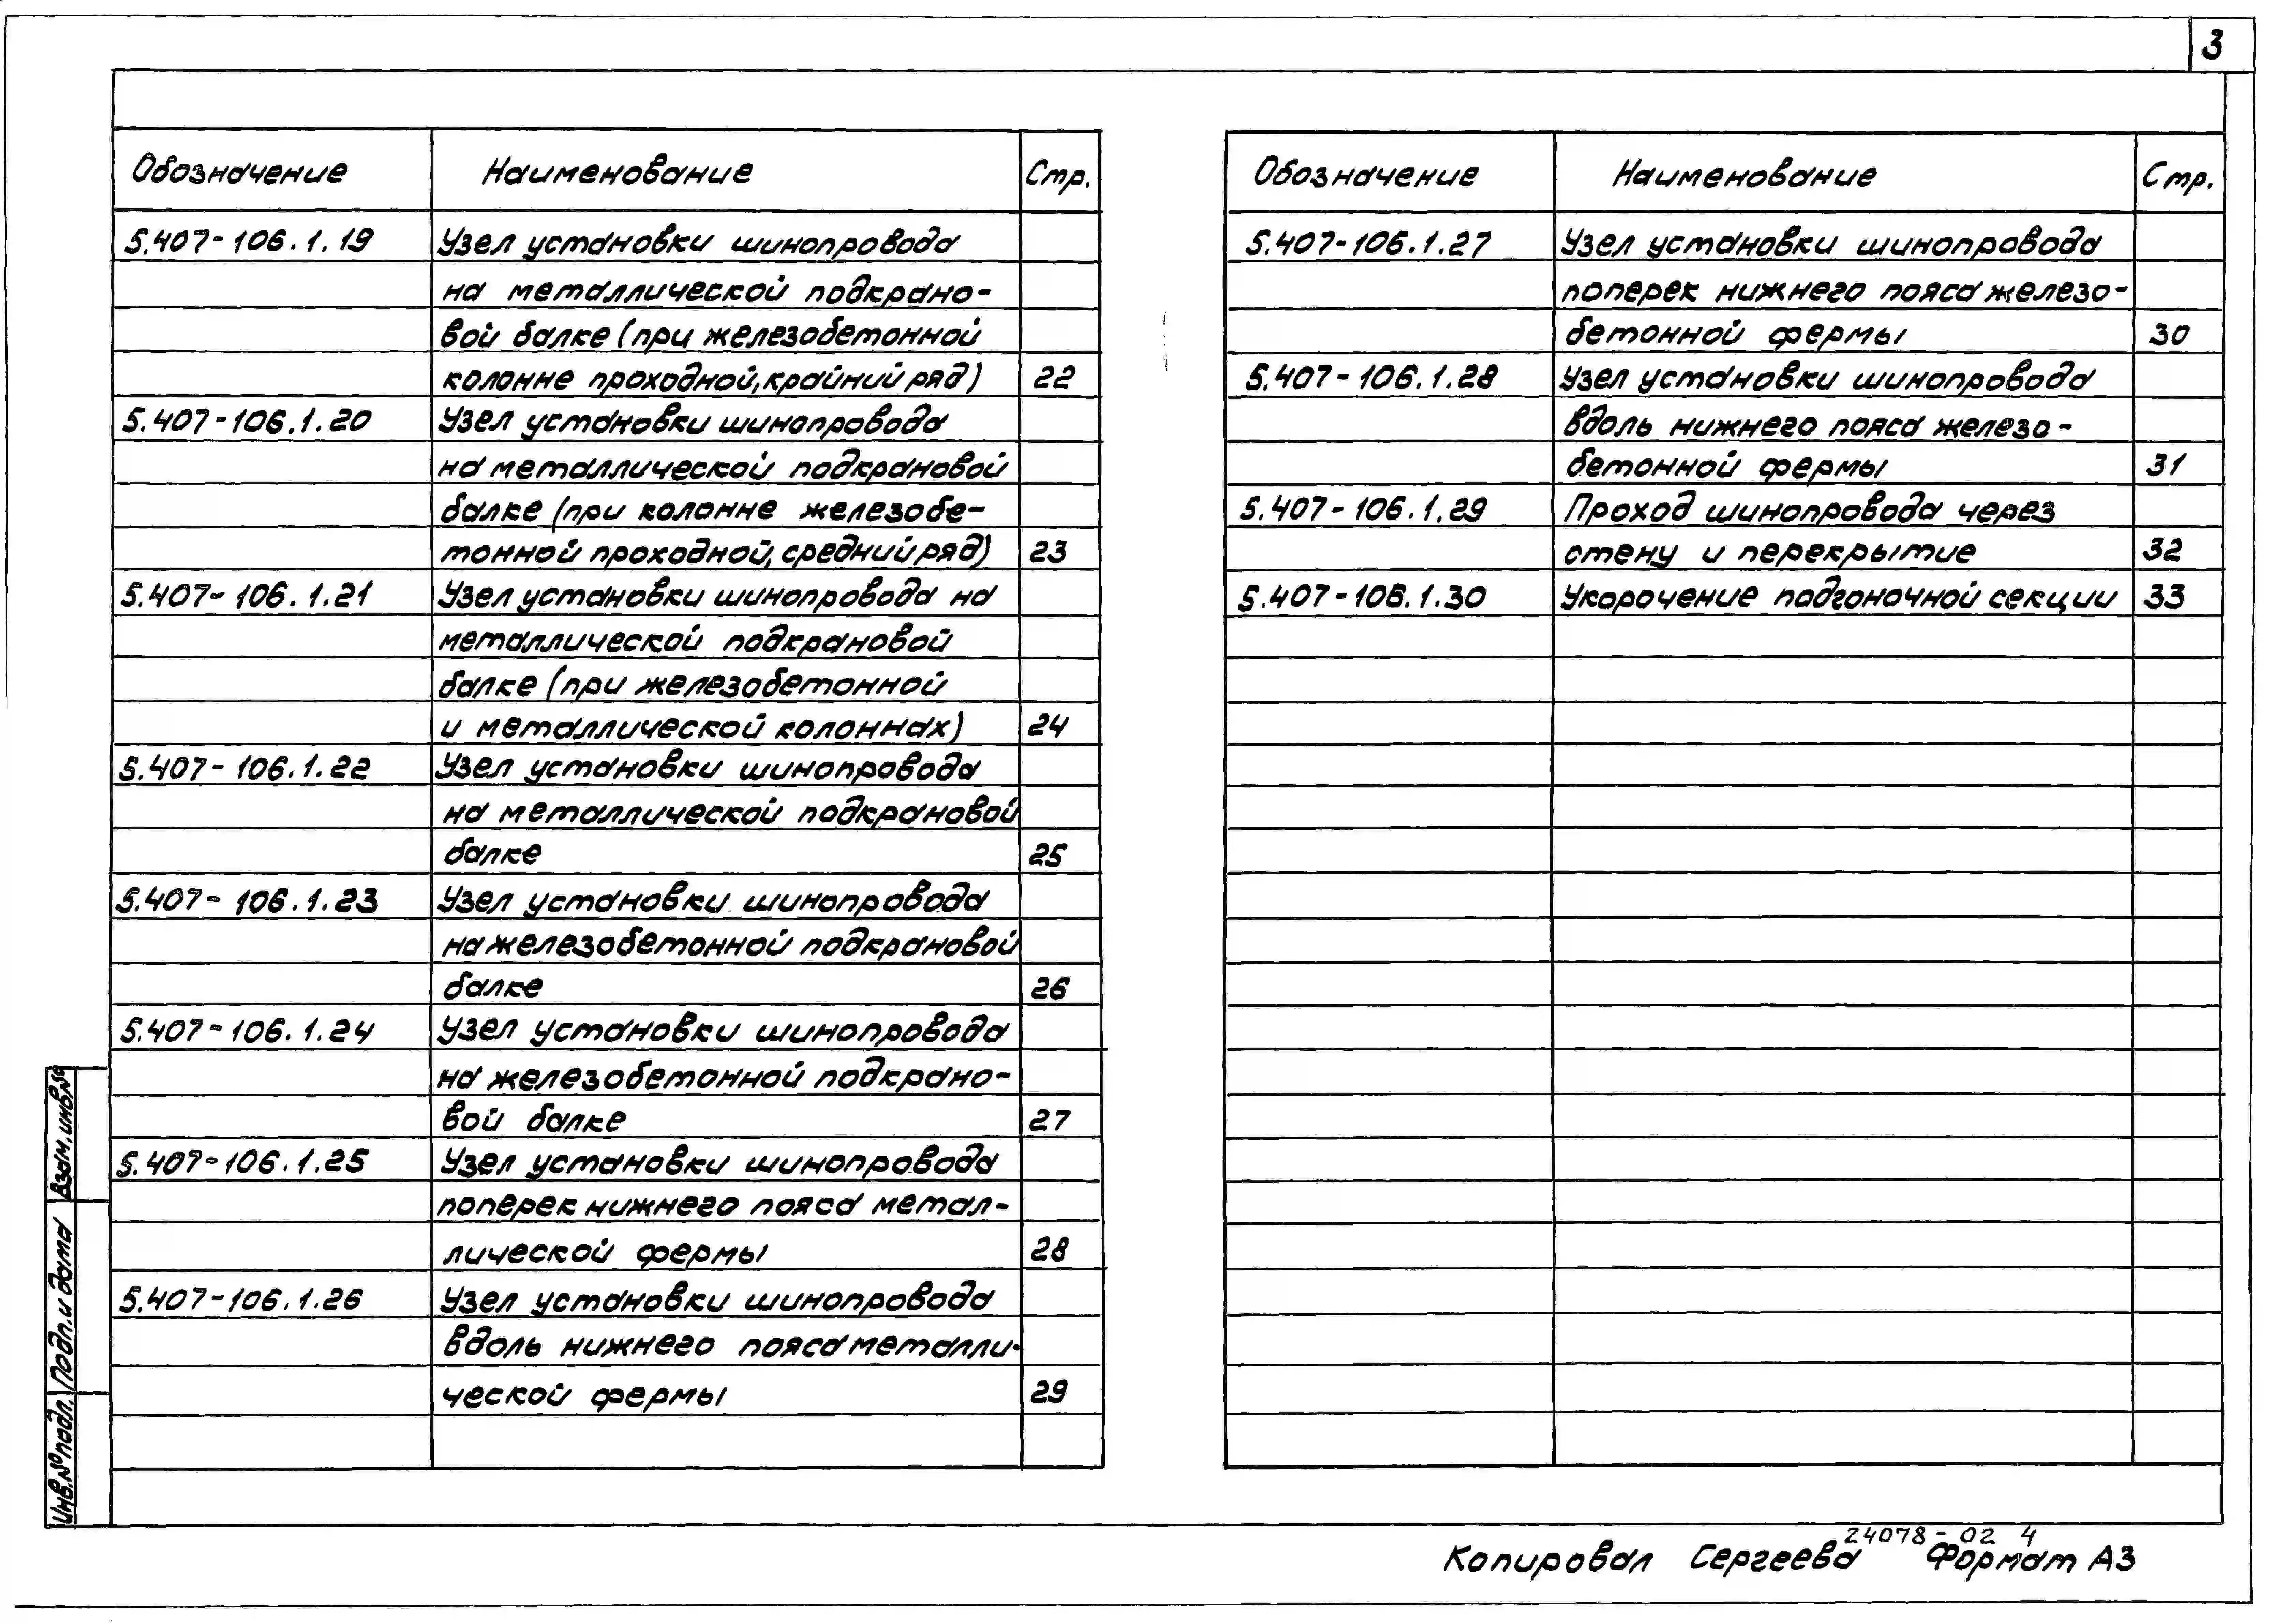 3
Обозначение Наименование Стр.
5.407-106.1.19 Узел установки шинопровода
на металлической подкрано-
вой балке (при железобетонной
колонне проходной, крайний ряд) 22
5.407-106.1.20 Узел установки шинопровода
на металлической подкрановой
балке (при колонне железобе-
тонной проходной, средний ряд) 23
5.407-106.1.21 Узел установки шинопровода на
металлической подкрановой
балке (при железобетонной
и металлической колоннах) 24
5.407-106.1.22 Узел установки шинопровода
на металлической подкрановой
балке 25
5.407-106.1.23 Узел установки шинопровода
на железобетонной подкрановой
балке 26
5.407-106.1.24 Узел установки шинопровода
на железобетонной подкрано-
вой балке 27
5.407-106.1.25 Узел установки шинопровода
поперек нижнего пояса метал-
лической фермы 28
5.407-106.1.26 Узел установки шинопровода
вдоль нижнего пояса металли-
ческой фермы 29
Обозначение Наименование Стр.
5.407-106.1.27 Узел установки шинопровода
поперек нижнего пояса железо-
бетонной фермы 30
5.407-106.1.28 Узел установки шинопровода
вдоль нижнего пояса железо-
бетонной фермы 31
5.407-106.1.29 Проход шинопровода через
стену и перекрытие 32
5.407-106.1.30 Укорочение подгоночной секции 33
Взам.инв.№
Подп.и дата
Инв.№подл.
24078-02 4
Копировал Сергеева Формат А3